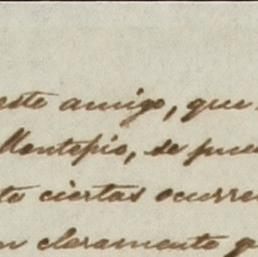 este amigo, que
Montepio, se pue
te ciertas ocurre
n claramente q